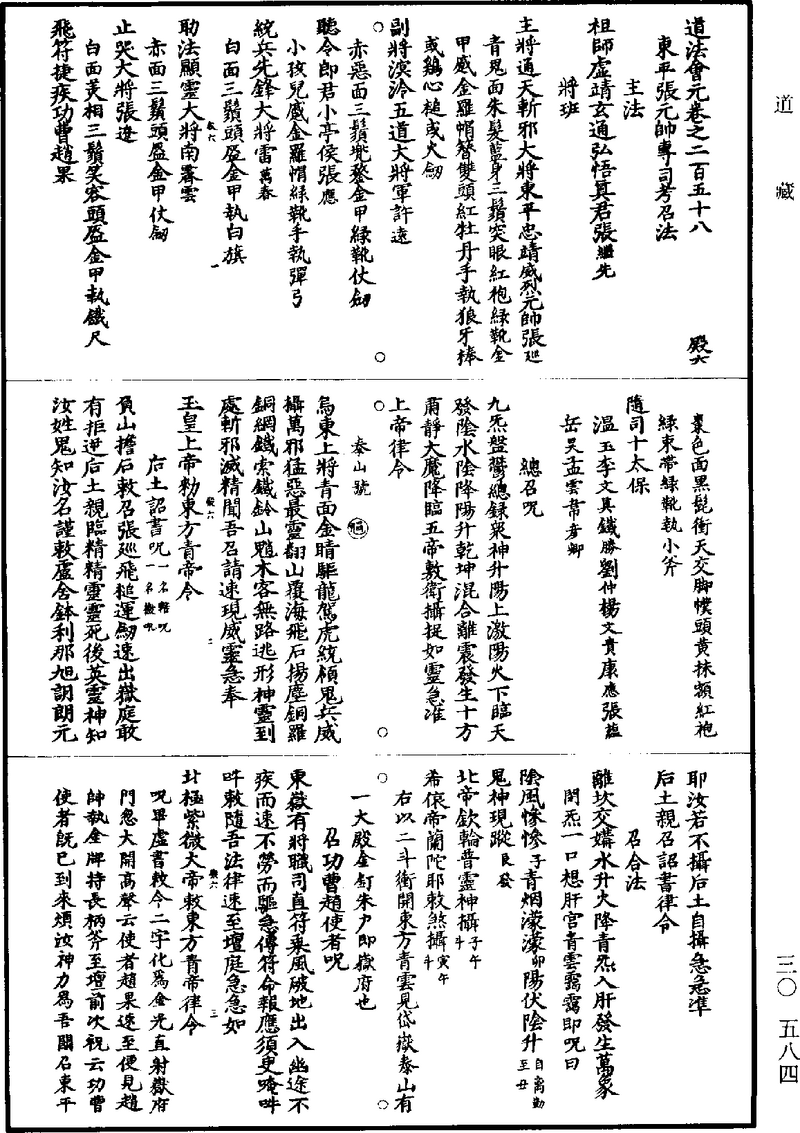 道藏
道法會元卷之二百五十八　殿六
東平張元帥專司考召法
主法
祖師虛靖玄通弘悟真君張繼先
將班
主將通天斬邪大將東平忠靖威烈元帥張巡
青鬼面朱髮藍身三鬚突眼紅袍綠靴金
甲戚金羅帽簪雙頭紅牡丹手執狼牙棒
或鷄心槌或火劒
副將溟泠五道大將軍許遠
赤惡面三鬚兜鍪金甲綠靴仗劒
聽令郎君小亭侯張應
小孩兒戚金羅帽綠靴手執彈弓
統兵先鋒大將雷萬春
白面三鬚頭盔金甲執白旗
助法顯靈大將南霽雲
赤面三鬚頭盔金甲仗劒
止哭大將張遼
白面美相三鬚笑容頭盔金甲執鐵尺
飛符捷疾功曹趙果
棗色面黑髭衝天交脚幞頭黃抹額紅袍
綠束帶綠靴執小斧
隨司十太保
溫玉李文真鐵勝劉仲楊文貴康應張蘊
岳昊孟雲韋彥卿
總召呪
九炁盤鬱總録衆神升陽上激陽火下臨天
發陰水陰降陽升乾坤混合離震發生十方
肅靜大魔降臨五帝敷衛攝捉如靈急准
上帝律令
泰山號
烏東上將青面金睛驅龍駕虎統領鬼兵威
攝萬邪猛惡最靈翻山覆海飛石揚塵銅羅
銅網鐵索鐵鈴山魈木客無路逃形神靈到
處斬邪滅精聞吾召請速現威靈急奉
玉皇上帝勑東方青帝令
后土詔書呪
負山擔石敕召張巡飛槌運劒速出嶽庭敢
有拒逆后土親臨精精靈靈死後英靈神知
汝姓鬼知汝名謹敕盧舍鉢利那旭詗朗元
耶汝若不攝后土自攝急急准
后土親召詔書律令
召合法
離坎交媾水升火降青炁入肝發生萬象
閉炁一口想肝宮青雲靄靄即呪曰
陰風慘慘子青烟濛濛卯陽伏陰升自离勤至丑
鬼神現蹤艮發
北帝欽輪普靈神攝子午斗
希依帝蘭陀耶敕煞攝寅午斗
右以二斗衝開東方青雲見岱嶽泰山有
一大殿金釘朱户即嶽府也
召功曹趙使者呪
東嶽有將職司直符乘風破地出入幽途不
疾而速不勞而驅急傳符命報應須臾唵吽
吽敕隨吾法律速至壇庭急急如
北極紫微大帝敕東方青帝律令
呪畢虛書敕令二字化爲金光直射嶽府
門忽大開高聲云使者趙果速至便見趙
帥執金牌持長柄斧至壇前次祝云功曹
使者既已到來煩汝神力爲吾關召東平
三〇　五八四